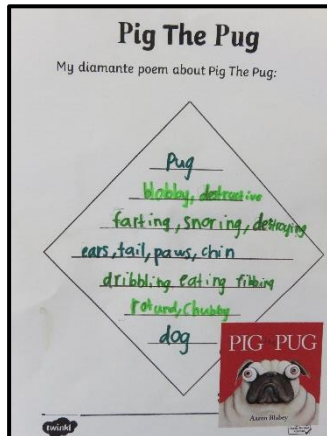 Pig The Pug
My diamante poem about Pig The Pug:
Pug
blobby, destructive
farting, snoring, destroying
ears, tail, paws, chin
dribbling eating fibbing
rotund, chubby
dog
PIG THE PUG
Aaron Blabey
twinkl